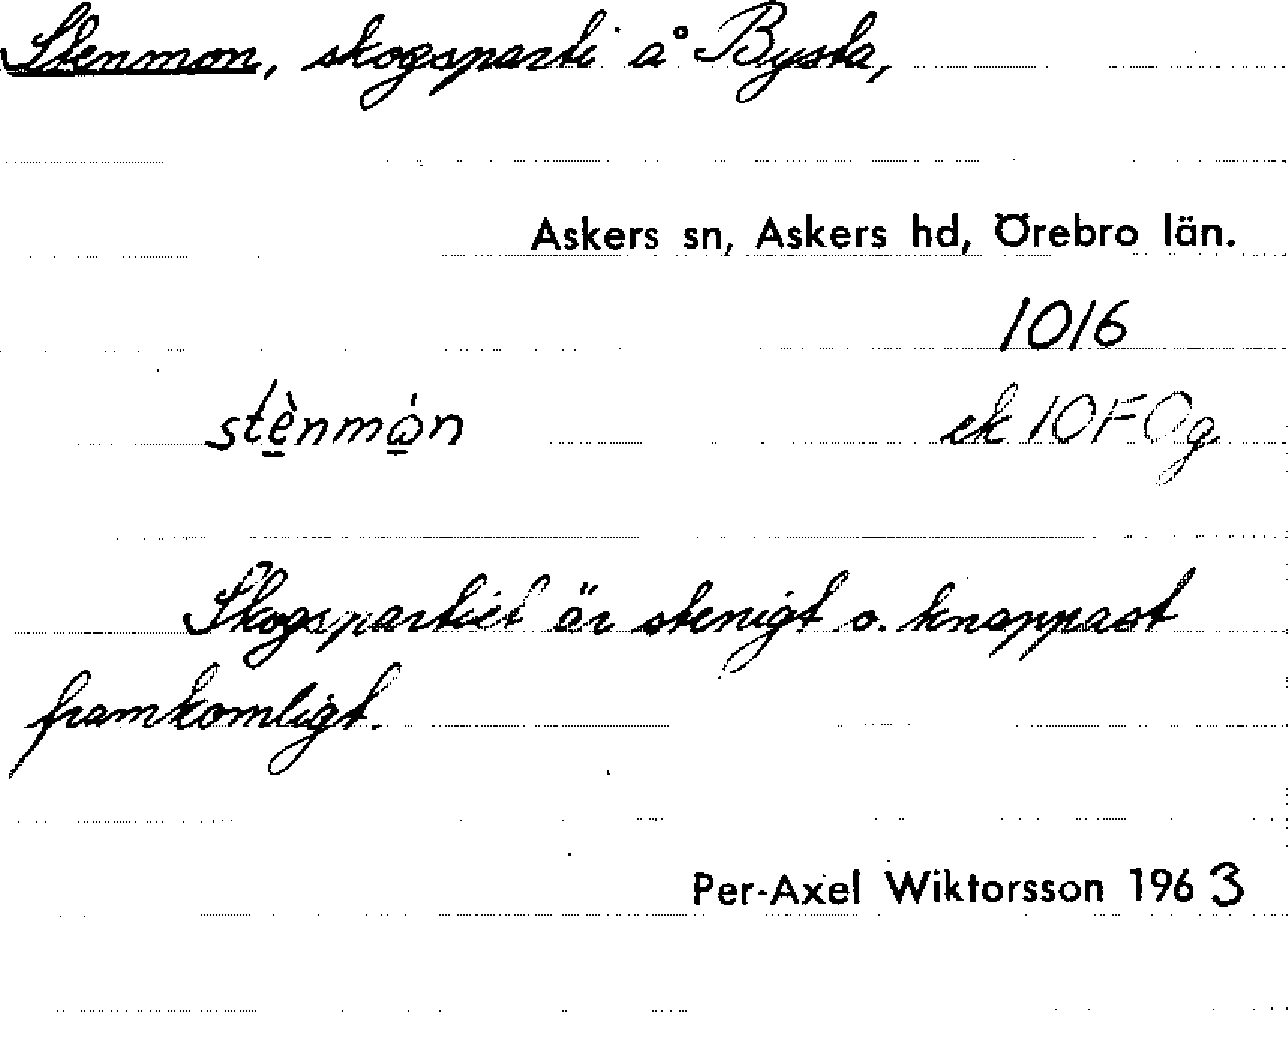 Stenmon, skogsparti å Bysta,
Askers sn, Askers hd, Örebro län.
1016
stè̱nmώ̱n ek 10F Og
Skogspartiet är stenigt o. knappast
framkomligt.
Per-Axel Wiktorsson 1963